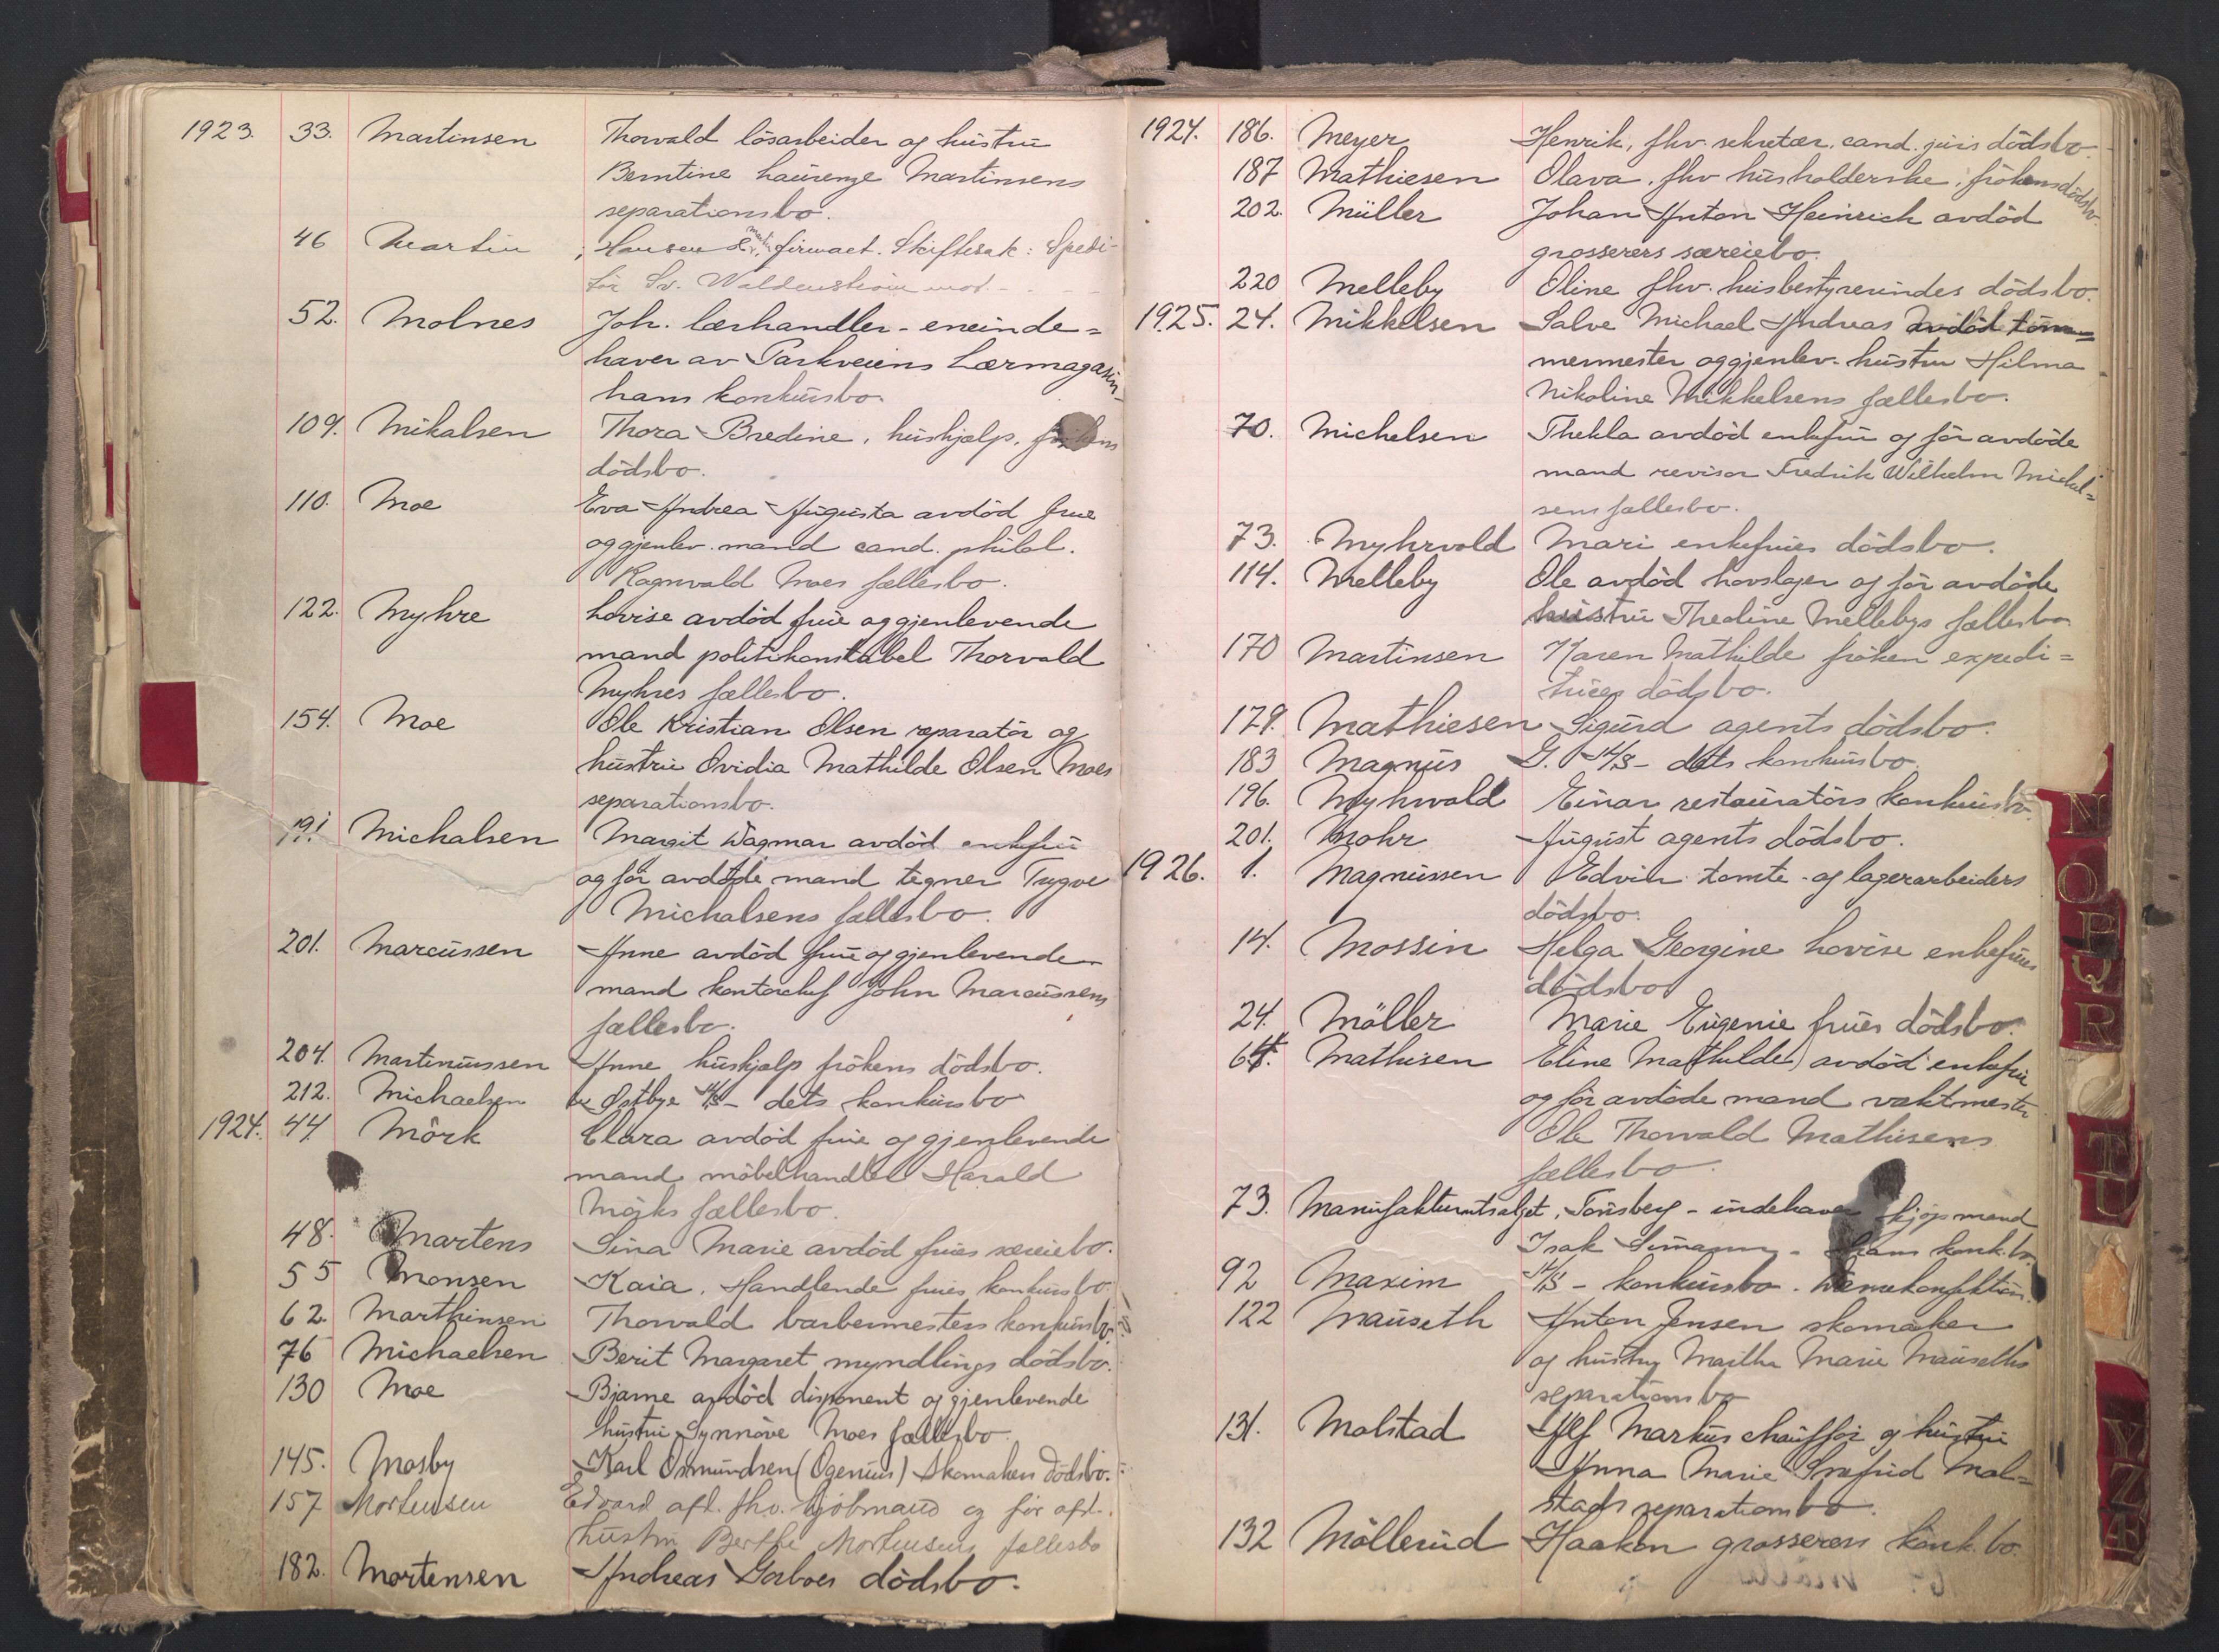 1923. 33. Martinsen Thorvald lösarbeider og hustru
Berntine Laurenze Martinsens
separationsbo.
46 Martin, Hansen & Martin, firmaet. Skiftesak: Spedi-
tör Sv. Waldenström mot - - -
52. Molnes Joh. lærhandler - eneinde=
haver av Parkveiens Lærmagasin -
hans konkursbo
109. Mikalsen Thora Bredine, hushjælp, frökens
dödsbo.
110. Moe Eva Andrea Augusta avdöd frue
og gjenlev. mand cand. philol.
Ragnvald Moes fællesbo.
122. Myhre Lovise avdöd frue og gjenlevende
mand politikonstabel Thorvald
Myhres fællesbo.
154. Moe Ole Kristian Olsen reparatör og
hustru Ovidia Mathilde Olsen Moes
separationsbo.
191 Michalsen Margit Dagmar avdöd enkefru
og för avdöde mand tegner Trygve
Michalsens fællesbo.
201. Marcussen Anne avdöd frue og gjenlevende
mand kontorchef John Marcussens
fællesbo.
204. Martinussen Anne hushjælp frökens dödsbo.
212. Michaelsen & Östbye A/S - dets konkursbo
1924. 44 Mörk Clara avdöd frue og gjenlevende
mand möbelhandler Harald
Mörks fællesbo.
48. Martens Sina Marie avdöd frues særeiebo.
55 Monsen Kaia, Handlende frues konkursbo.
62. Marthinsen Thorvald barbermesters konkursbo.
76 Michaelsen Berit Margaret myndlings dödsbo.
130 Moe Bjarne avdöd disponent og gjenlevende
hustru Synnöve Moes fællesbo.
145. Mosby Karl Osmundsen (Ogenius) Skomakers Dödsbo.
157 Mortensen Edvard afd. fhv. kjöbmand og för afd.
hustru Berthe Mortensens fællesbo
182. Mortensen Andreas dödsbo.
1924. 186. Meyer Henrik, fhv. sekretær, cand. juris dödsbo.
187 Mathiesen Olava, fhv husholderske, frökens dödsbo.
202. Müller Johan Anton Heinrich avdöd
grosserers særeiebo.
220 Melleby Oline fhv. husbestyrerindes dödsbo.
1925. 24. Mikkelsen Salve Michael Andreas avdöd töm=
mermester og gjenlev. hustru Hilma
Nikoline Mikkelsens fællesbo.
70. Michelsen Thekla avdöd enkefru og för avdöde
mand revisor Fredrik Wilhelm Michel=
sens fællesbo.
73. Myhrvold Mari enkefrues dödsbo.
114. Melleby Ole avdöd hovslager og för avdöde
hustru Thedine Mellebys fællesbo
170 Martinsen Karen Mathilde fröken expedi=
trices dödsbo.
179. Mathiesen Sigurd agents dödsbo.
183 Magnus G. A/S - dets konkursbo.
196. Myhrvold Einar restauratörs konkursbo.
201. Mohr August agents dödsbo.
1926. 1. Magnussen Edvin tomte- og lagerarbeiders
dödsbo.
14. Mossin Helga Georgine Lovise enkefrues
dödsbo
24. Möller Marie Eugenie frues dödsbo.
64. Mathisen Eline Mathilde avdöd enkefru
og för avdöde mand vaktmester
Ole Thorvald Mathisens
fællesbo.
73. Manufakturutsalget, Tönsberg - indehaver kjöpmand
Isak Simann - hans konk.bo.
92 Maxim A/S - konkursbo. Damekonfektion.
122 Mauseth Anton Jensen skomaker
og hustru Marthe Marie Mauseths
separationsbo
131. Malstad Alf Markus chaufför og hustru
Anna Marie Mal=
stads separationsbo.
132 Möllerud Haakon grosserers konk.bo.
M
O
P
Q
R
T
U
Y
Z
Æ